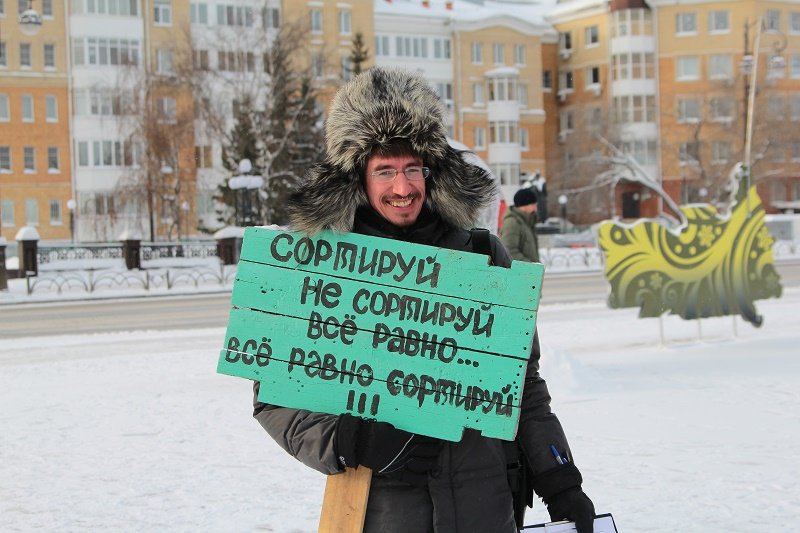 СОРТИРУЙ
НЕ СОРТИРУЙ
ВСЁ РАВНО...
ВСЁ РАВНО СОРТИРУЙ
!!!